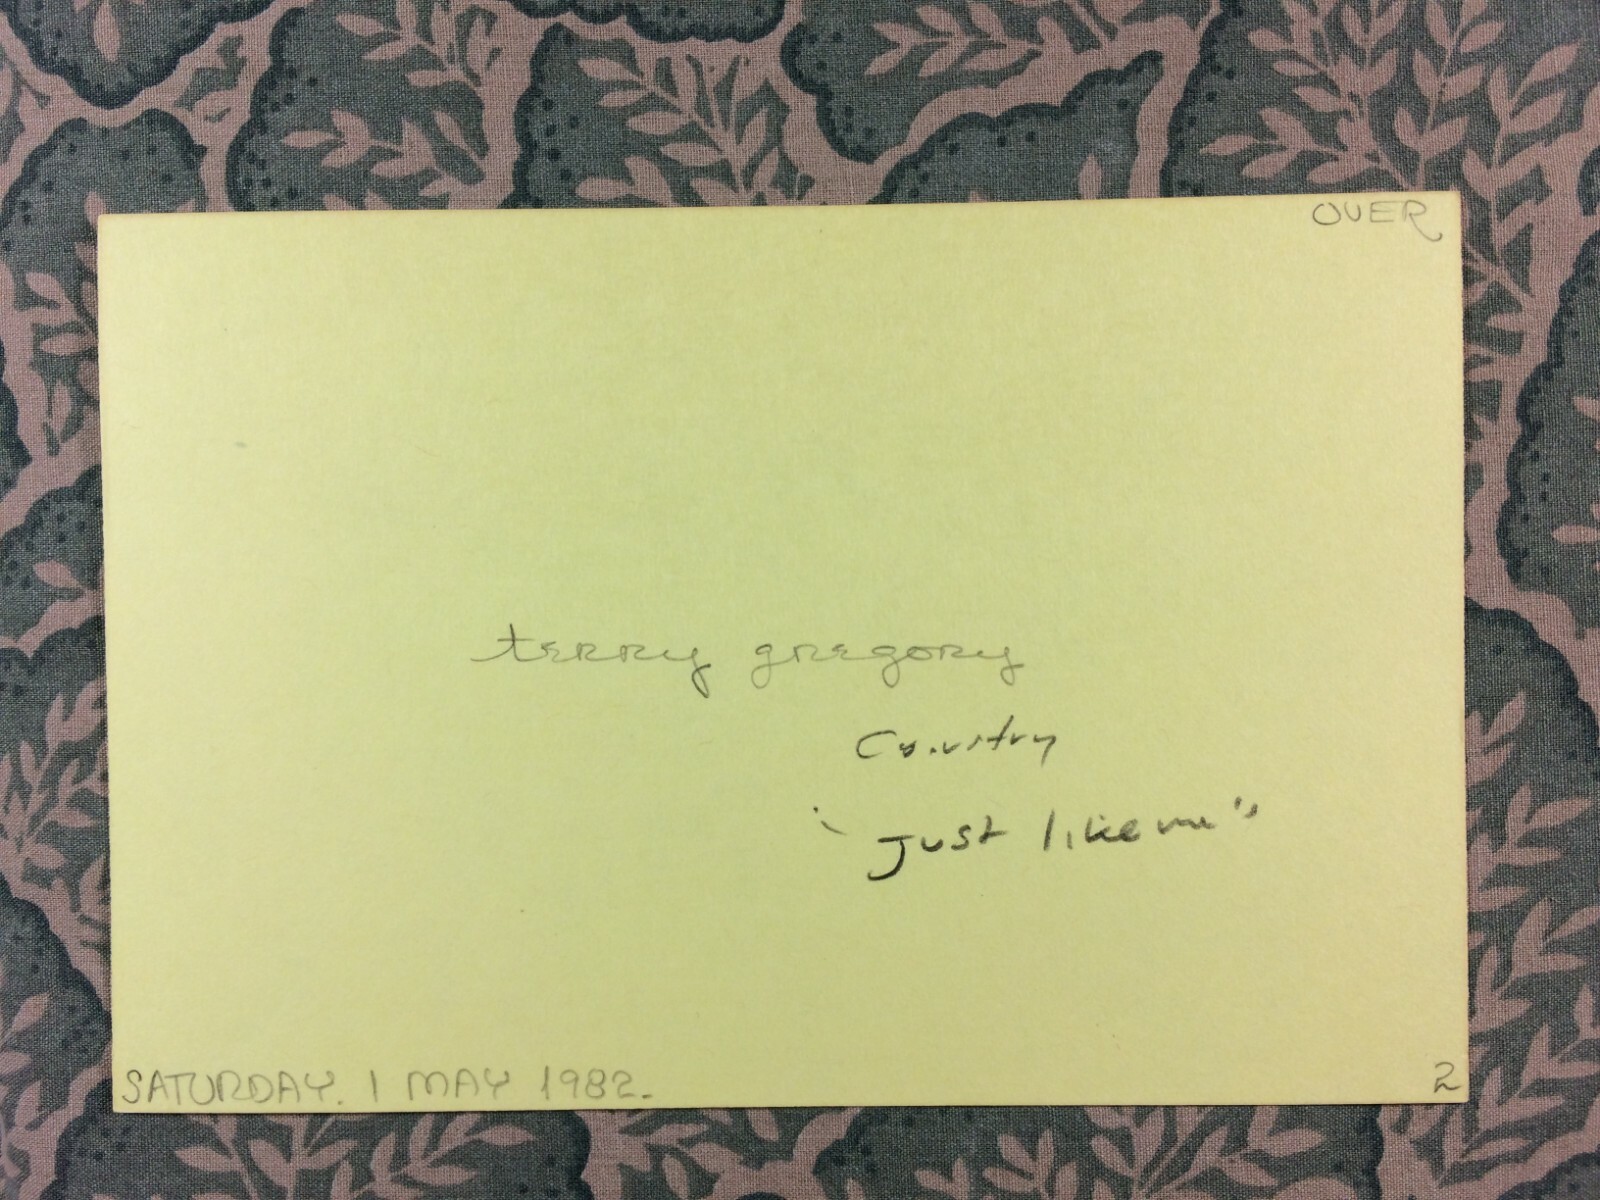 OVER
terry gregory
Country
"Just like me"
SATURDAY. 1 MAY 1982.
2